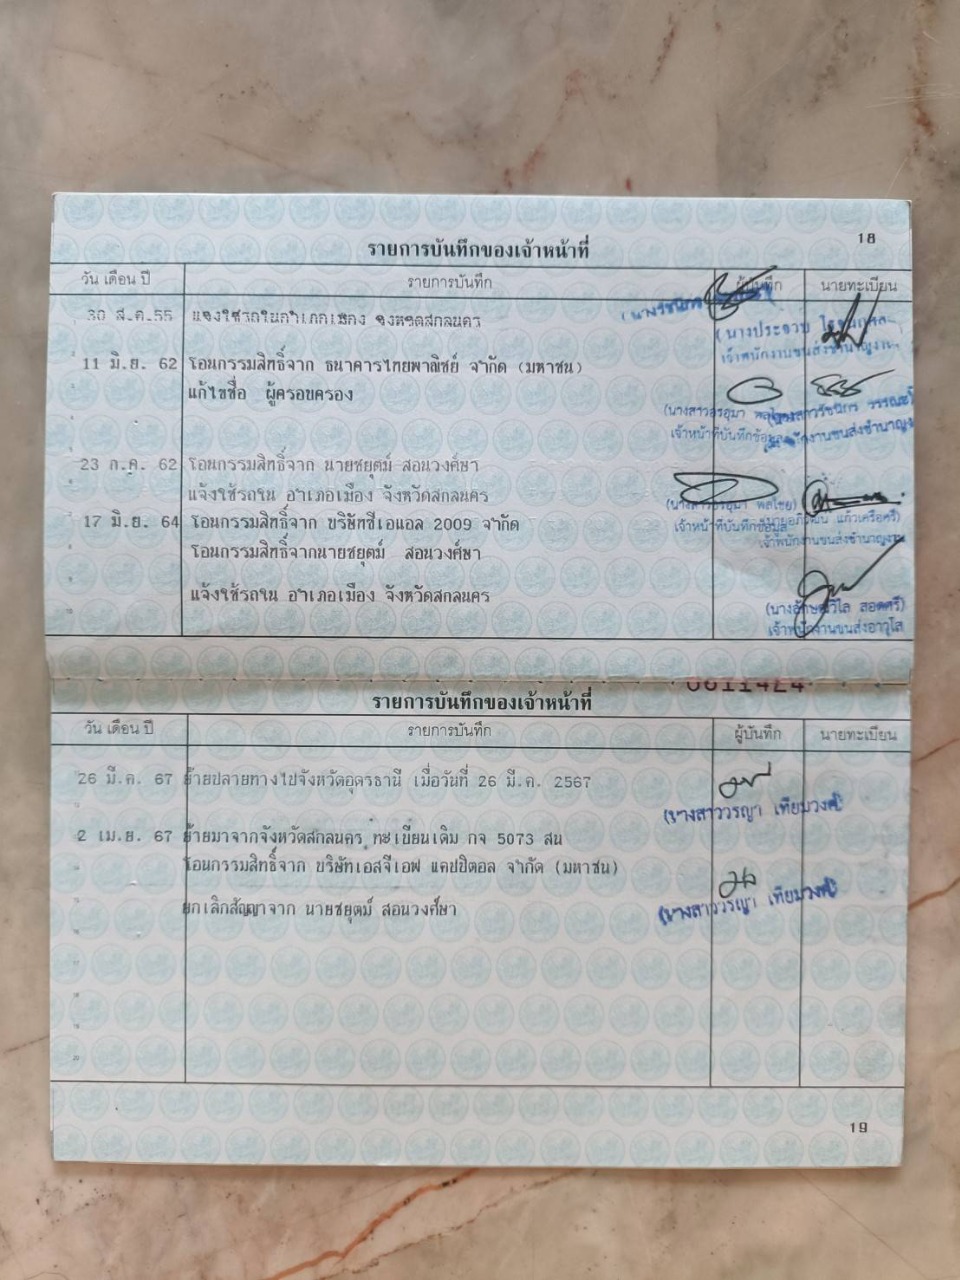 18
รายการบันทึกของเจ้าหน้าที่
วัน เดือน ปี รายการบันทึก ผู้บันทึก นายทะเบียน
30 ส.ค.55 แจ้งใช้รถในอำเภอเมือง จังหวัดสกลนคร
(นางประดวบ
เจ้าพนักงานขนส่งชำนาญงาน
11 มิ.ย. 62 โอนกรรมสิทธิ์จาก ธนาคารไทยพาณิชย์ จำกัด (มหาชน)
แก้ไขชื่อ ผู้ครอบครอง
(นางสาวอรอุมา
เจ้าหน้าที่บันทึกข้อมูล
23 ก.ค. 62 โอนกรรมสิทธิ์จาก นายชยุตม์ สอนวงศ์ษา
แจ้งใช้รถใน อำเภอเมือง จังหวัดสกลนคร
(นางสาวอรอุมา พลไชย)
เจ้าหน้าที่บันทึกข้อมูล
แก้วเครือศรี)
เจ้าพนักงานขนส่งชำนาญงาน
17 มิ.ย. 64 โอนกรรมสิทธิ์จาก บริษัทซีเอแอล 2009 จำกัด
โอนกรรมสิทธิ์จากนายชยุตม์ สอนวงศ์ษา
แจ้งใช้รถใน อำเภอเมือง จังหวัดสกลนคร
(นางลักษณ์วิไล สอดศรี)
เจ้าพนักงานขนส่งอาวุโส
0611424
รายการบันทึกของเจ้าหน้าที่
วัน เดือน ปี รายการบันทึก ผู้บันทึก นายทะเบียน
26 มี.ค. 67 ย้ายปลายทางไปจังหวัดอุดรธานี เมื่อวันที่ 26 มี.ค. 2567
(นางสาววรญา เทียมวงศ์)
2 เม.ย. 67 ย้ายมาจากจังหวัดสกลนคร ทะเบียนเดิม กจ 5073 สน
โอนกรรมสิทธิ์จาก บริษัทเอสจีเอฟ แคปปิตอล จำกัด (มหาชน)
ยกเลิกสัญญาจาก นายชยุตม์ สอนวงศ์ษา
(นางสาววรญา เทียมวงศ์)
19